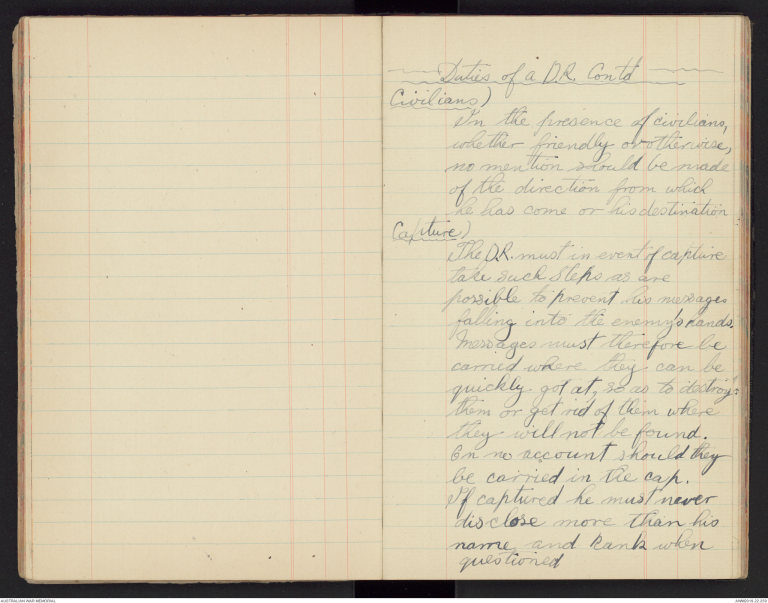 Duties of a D.R. Contd
Civilians)
In the presence of civilians,
whether friendly or otherwise,
no mention should be made
of the direction from which
he has come or his destination
Capture)
The D.R. must in event of capture
take such steps as are
possible to prevent his messages
falling into the enemy's hands.
Messages must therefore be
carried where they can be
quickly got at, so as to destroy
them or get rid of them where
they will not be found.
On no account should they
be carried in the cap.
If captured he must never
disclose more than his
name and Rank when
questioned
AUSTRALIAN WAR MEMORIAL